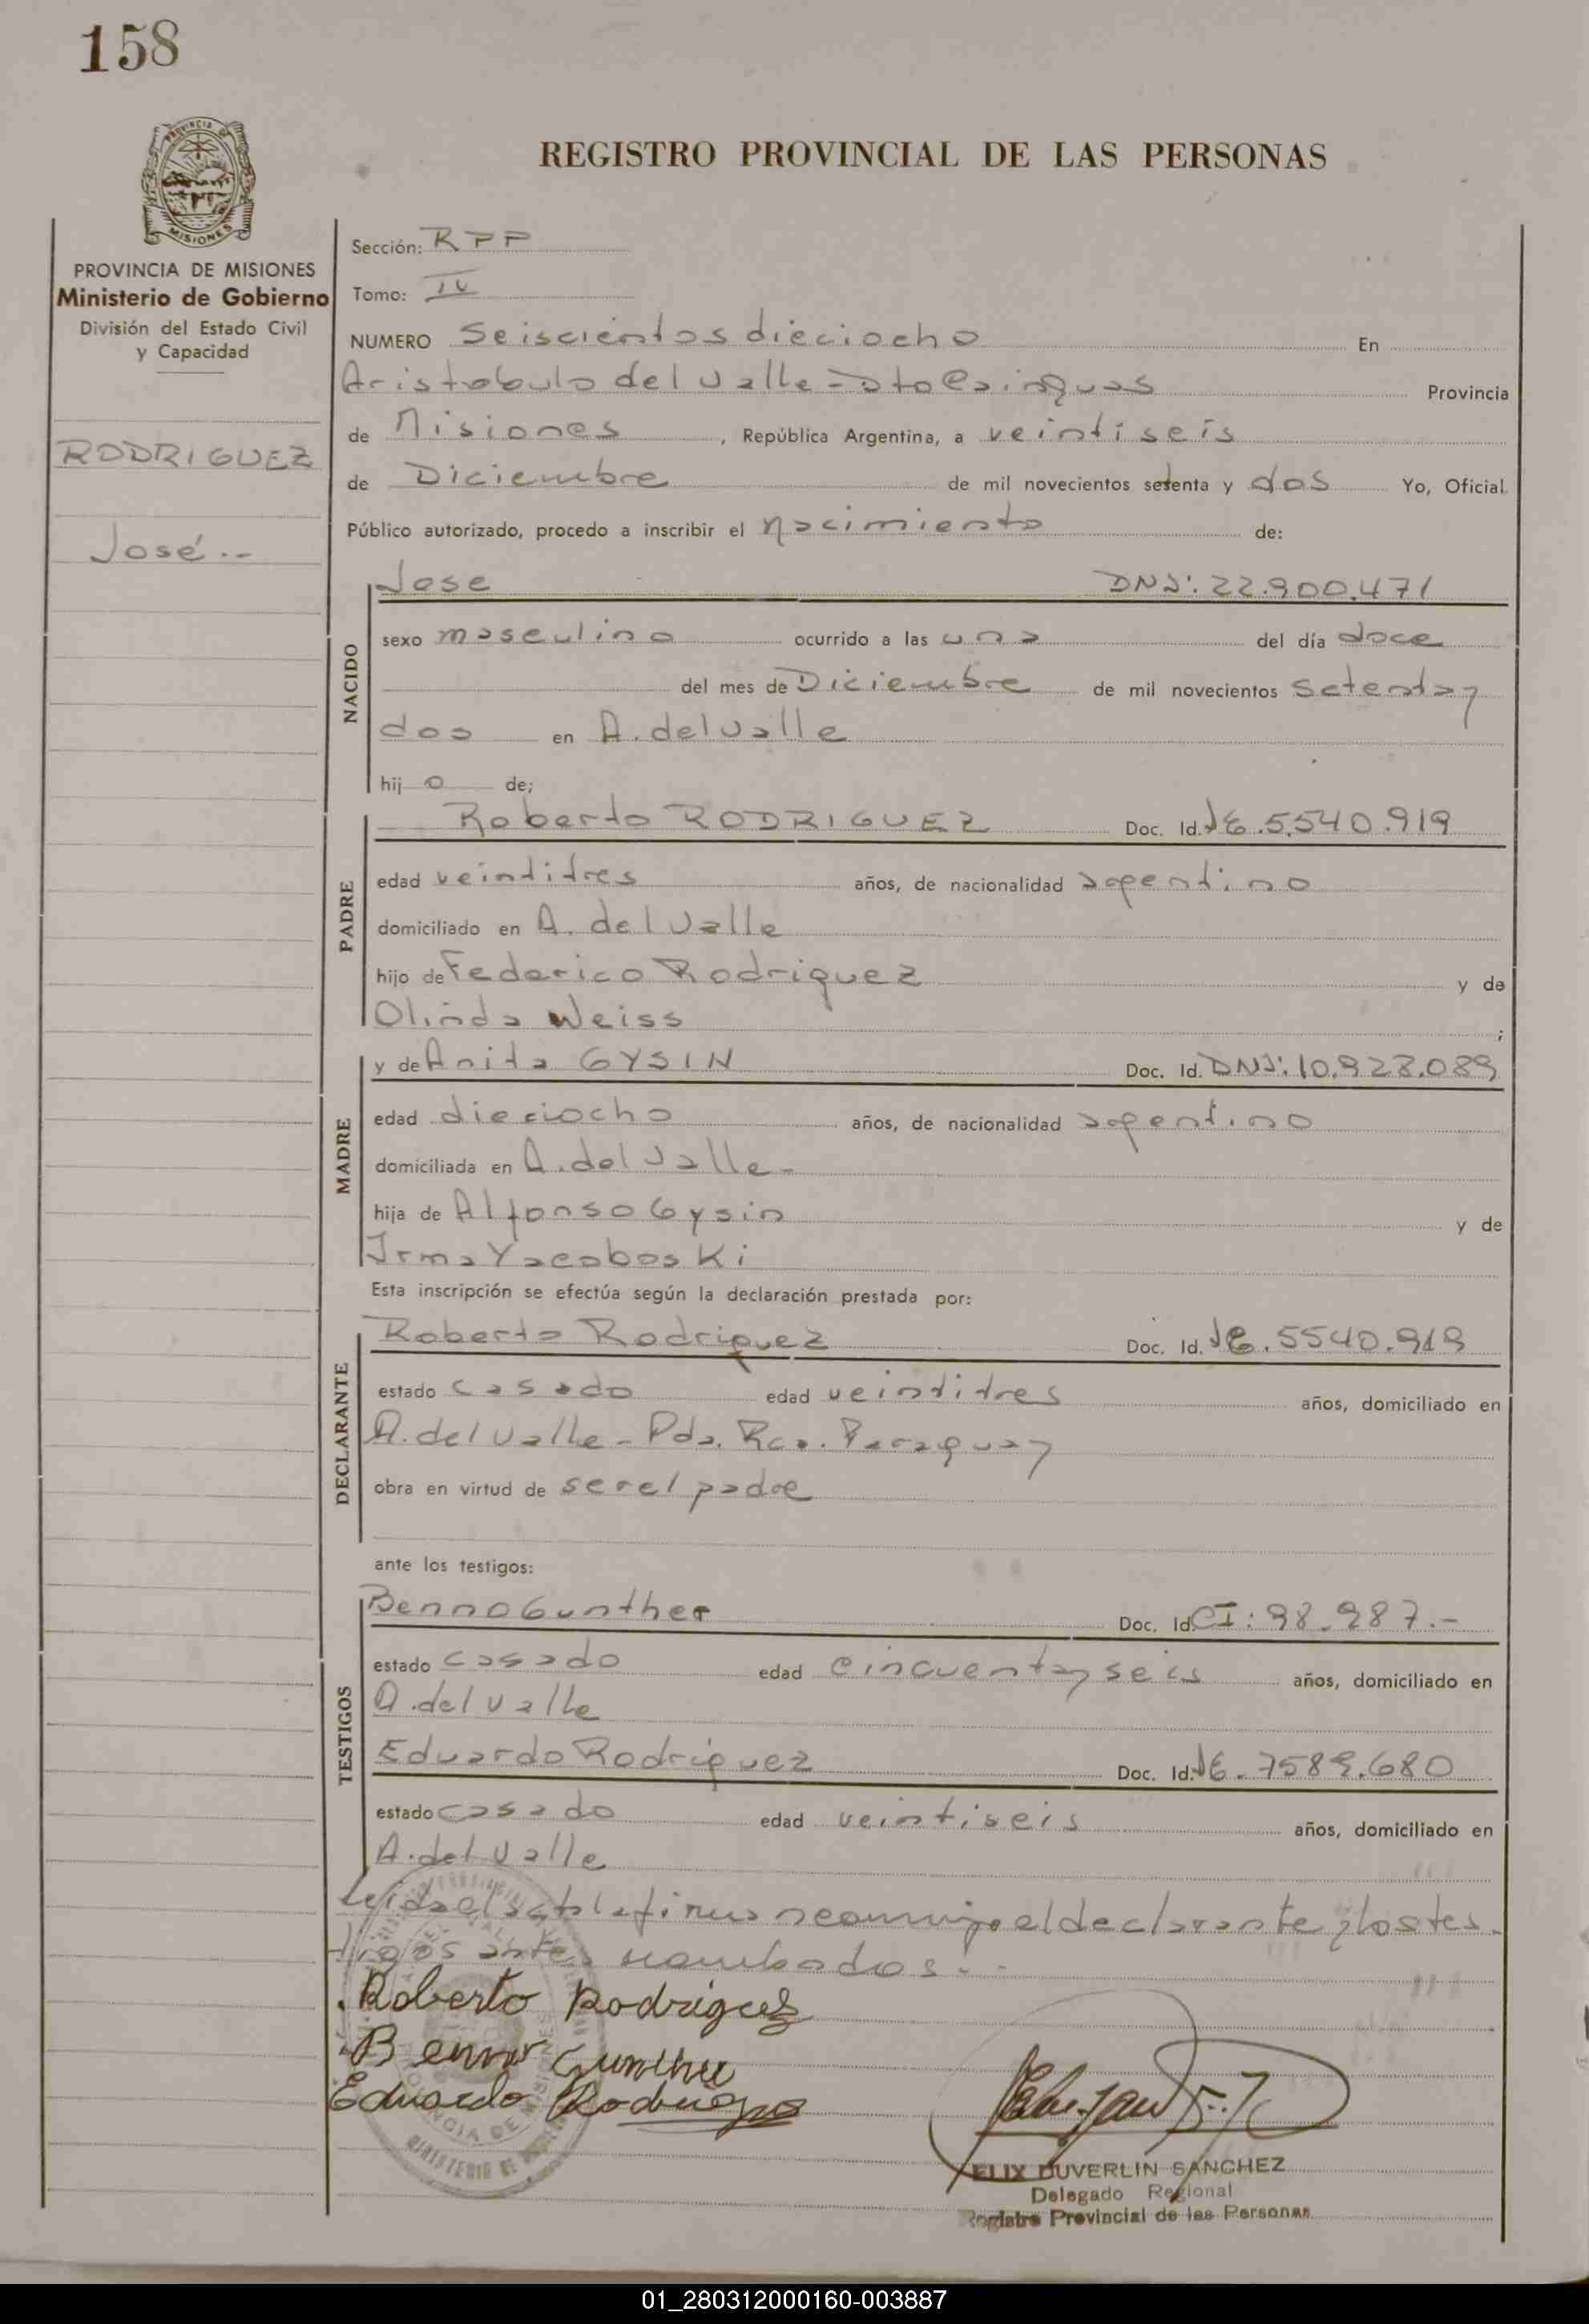 158
REGISTRO PROVINCIAL DE LAS PERSONAS
PROVINCIA DE MISIONES
Ministerio de Gobierno
División del Estado Civil
y Capacidad
RODRIGUEZ
José.--
Sección: RPP
Tomo: IV
NUMERO Seiscientos dieciocho En
Aristobulo del Valle - Dto Cainguas Provincia
de Misiones, República Argentina, a veintiseis
de Diciembre de mil novecientos setenta y dos Yo, Oficial
Público autorizado, procedo a inscribir el nacimiento de:
NACIDO
Jose DNI: 22.900.471
sexo masculino ocurrido a las una del día doce
del mes de Diciembre de mil novecientos setenta y
dos en A. del Valle
hijo de;
PADRE
Roberto RODRIGUEZ Doc. Id. LE.5.540.919
edad veintitres años, de nacionalidad argentino
domiciliado en A. del Valle
hijo de Federico Rodriguez y de
Olinda Weiss ;
MADRE
y de Anita GYSIN Doc. Id. DNI: 10.928.089
edad dieciocho años, de nacionalidad argentino
domiciliada en A. del Valle -
hija de Alfonso Gysin y de
Irma Yacoboski
Esta inscripción se efectúa según la declaración prestada por:
DECLARANTE
Roberto Rodriguez Doc. Id. LE. 5540.919
estado casado edad veintitres años, domiciliado en
A. del Valle - Pda. Rca. Paraguay
obra en virtud de ser el padre
ante los testigos:
TESTIGOS
Benno Gunther Doc. Id. CI: 98.987.-
estado casado edad cincuenta y seis años, domiciliado en
A. del Valle
Eduardo Rodriguez Doc. Id. LE. 7589.680
estado casado edad veintiseis años, domiciliado en
A. del Valle
Leida el acta la firman conmigo el declarante y los tes-
tigos antes nombrados.-
Roberto Rodriguez
Benno Gunther
Eduardo Rodriguez
FELIX DUVERLIN SANCHEZ
Delegado Regional
Registro Provincial de las Personas
01_280312000160-003887